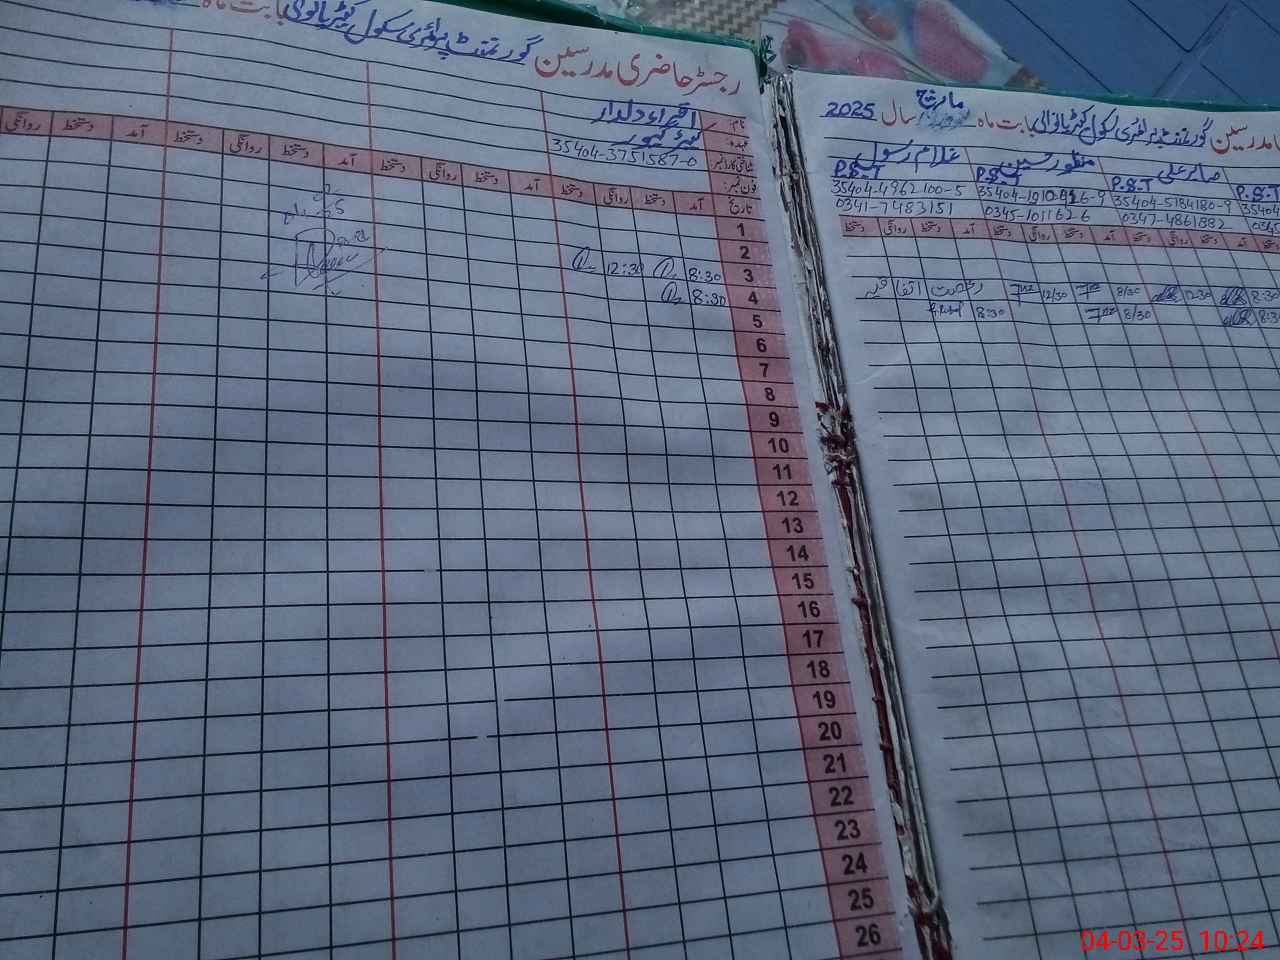 رجسٹر حاضری مدرسین گورنمنٹ پرائمری سکول کیڑیانوالی بابت ماہ
نام: اقراء دلدار
عہدہ:
شناختی کارڈ نمبر: 35404-3751587-0
فون نمبر:
تاریخ آمد دستخط روانگی دستخط آمد دستخط روانگی دستخط آمد دستخط روانگی دستخط آمد دستخط روانگی
1
2
3 8:30 12:30
4 8:30
5
6
7
8
9
10
11
12
13
14
15
16
17
18
19
20
21
22
23
24
25
26
مدرسین گورنمنٹ پرائمری سکول کیڑیانوالی بابت ماہ مارچ سال 2025
صابر علی منظور حسین غلام رسول
P.S.T P.S.T P.S.T P.S.T
35404 35404-5184180-9 35404-4962100-5
0345 0347-4861882 0345-1011626 0341-7483151
دستخط آمد دستخط روانگی دستخط آمد دستخط روانگی دستخط آمد دستخط روانگی دستخط
8:30 12:30 8/30 12/30 رخصت اتفاقیہ
8:30 8/30 8:30
04-03-25 10:24